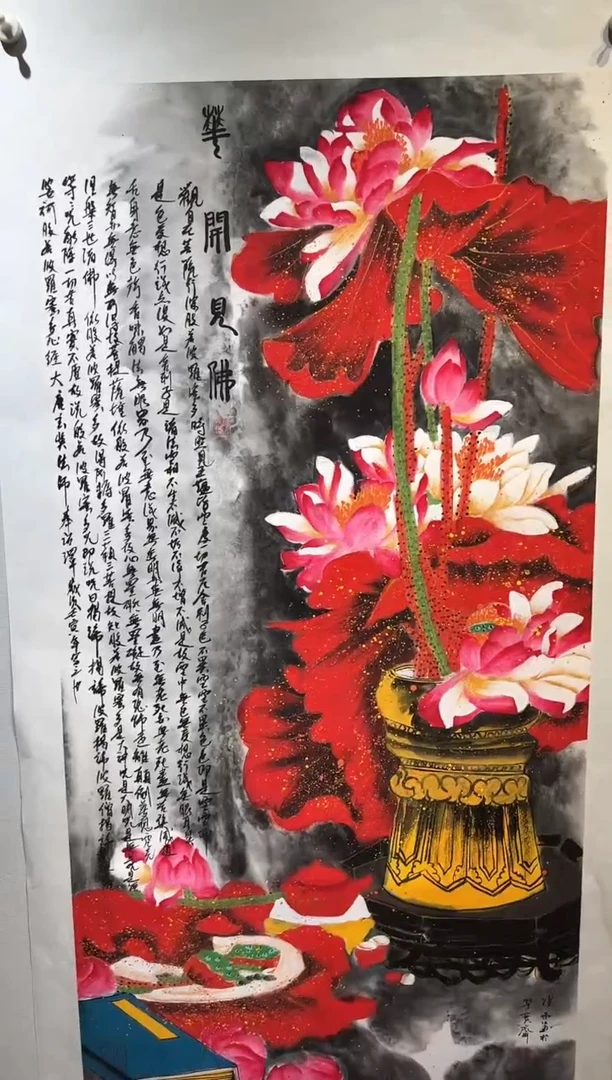 華開見佛
觀自在菩薩行深般若波羅蜜多時照見五蘊皆空度一切苦厄舍利子色不異空空不異色色即是空空即
是色受想行識亦復如是舍利子是諸法空相不生不滅不垢不淨不增不減是故空中無色無受想行識無眼耳鼻
舌身意無色聲香味觸法無眼界乃至無意識界無無明亦無無明盡乃至無老死亦無老死盡無苦集滅
無智亦無得以無所得故菩提薩埵依般若波羅蜜多故心無罣礙無罣礙故無有恐怖遠離顛倒夢想究竟
涅槃三世諸佛依般若波羅蜜多故得阿耨多羅三藐三菩提故知般若波羅蜜多是大神咒是大明咒是無上咒是無
等等咒能除一切苦真實不虛故說般若波羅蜜多咒即說咒曰揭諦揭諦波羅揭諦波羅僧揭諦
婆訶般若波羅蜜多心經大唐玄奘法師奉詔譯歲次壬寅年